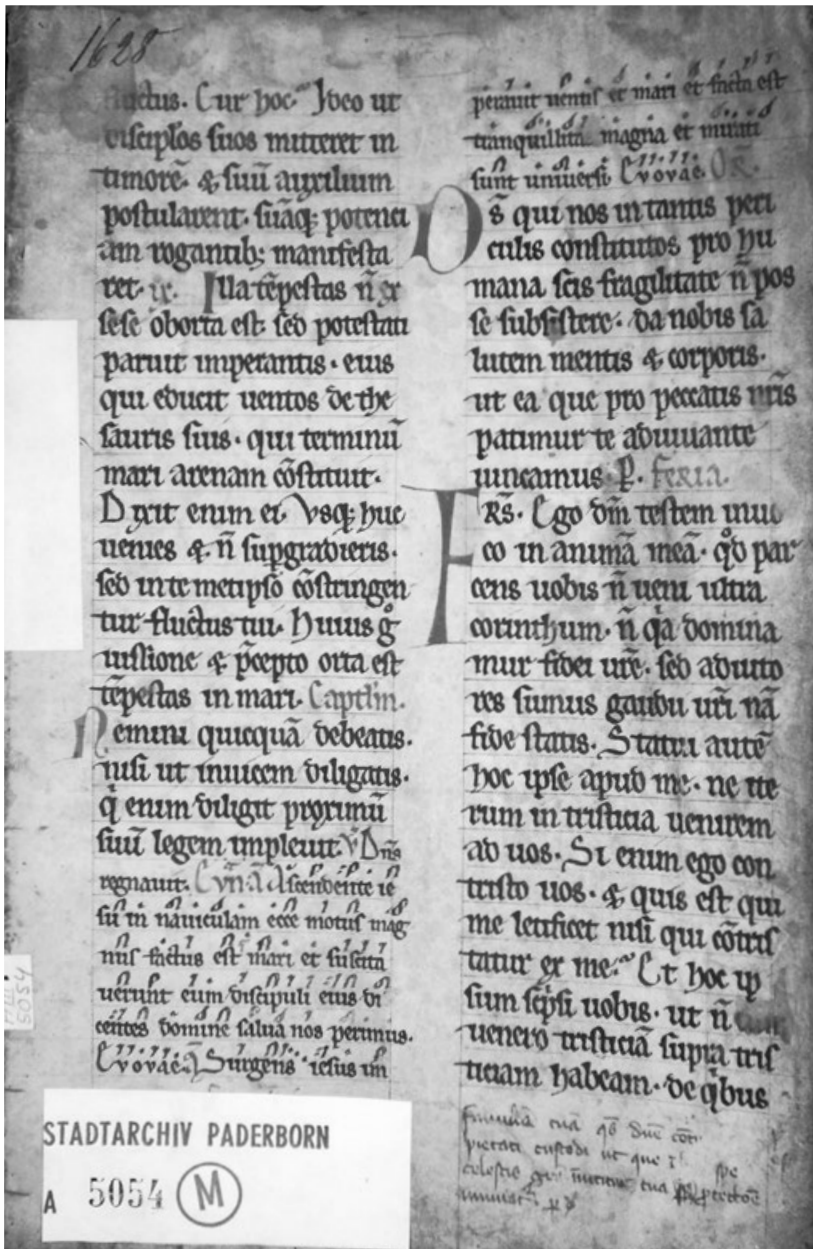 1628
fluctus. Cur hoc? Ideo ut
discip̄los suos mitteret in
timorē. & suū auxilium
postularent. suāq; potenci
am rogantib; manifesta
ret. Illa tēpestas n̄ ex
sese oborta est. sed potestati
paruit imperantis. eius
qui educit uentos de the
sauris suis. qui terminū
mari arenam cōstituit.
Dixit enim ei. Vsq; huc
uenies & n̄ sup̱gradieris.
sed in temetipso cōstringen
tur fluctus tui. Huius gͦ
iussione & p̄cepto orta est
tēpestas in mari. Captl̄m.
Nemini quicquā debeatis.
nisi ut inuicem diligatis.
q̇ enim diligit proximū
suū legem impleuit. V̇ Dn̄s
regnauit. Ascendente ie
su in nauiculam ecce motus mag
nus factus est mari et suscita
uerunt eum discipuli eius di
centes domine salua nos perimus.
Evovae. Surgens iesus im
perauit uentis et mari et facta est
tranquillita magna et mirati
sunt uniuersi Evovae. Or̄.
Ds̄ qui nos in tantis peri
culis constitutos pro hu
mana scis fragilitate n̄ pos
se subsistere. da nobis sa
lutem mentis & corporis.
ut ea que pro peccatis nr̄is
patimur te adiuuante
uincamus. P. Feria.
FRS̄. Ego dm̄ testem inuo
co in animā meā. qd̊ par
cens uobis n̄ ueni ultra
corinthum. n̄ qa̍ domina
mur fidei ur̄e. sed adiuto
res sumus gaudii ur̄i nā
fide statis. Statui autē
hoc ipse apud me. ne ite
rum in tristicia uenirem
ad uos. Si enim ego con
tristo uos. & quis est qui
me letificet nisi qui cōtris
tatur ex me? Et hoc ip
sum sc̱psi uobis. ut n̄ cum
uenero tristiciā supra tris
ticiam habeam. de q̍bus
famulā tuā qs̄ dn̄e
pietati custodi ut que
spe
celestis tua
STADTARCHIV PADERBORN
A 5054 M
5054